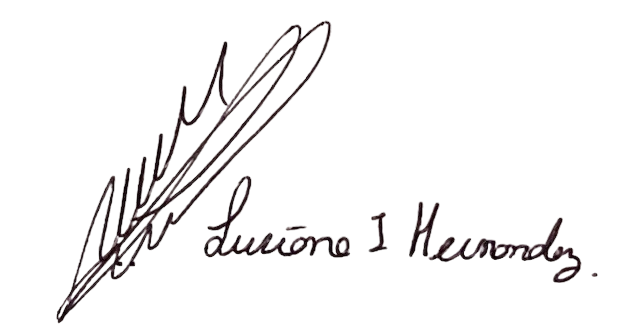 Luciano I Hernandez.